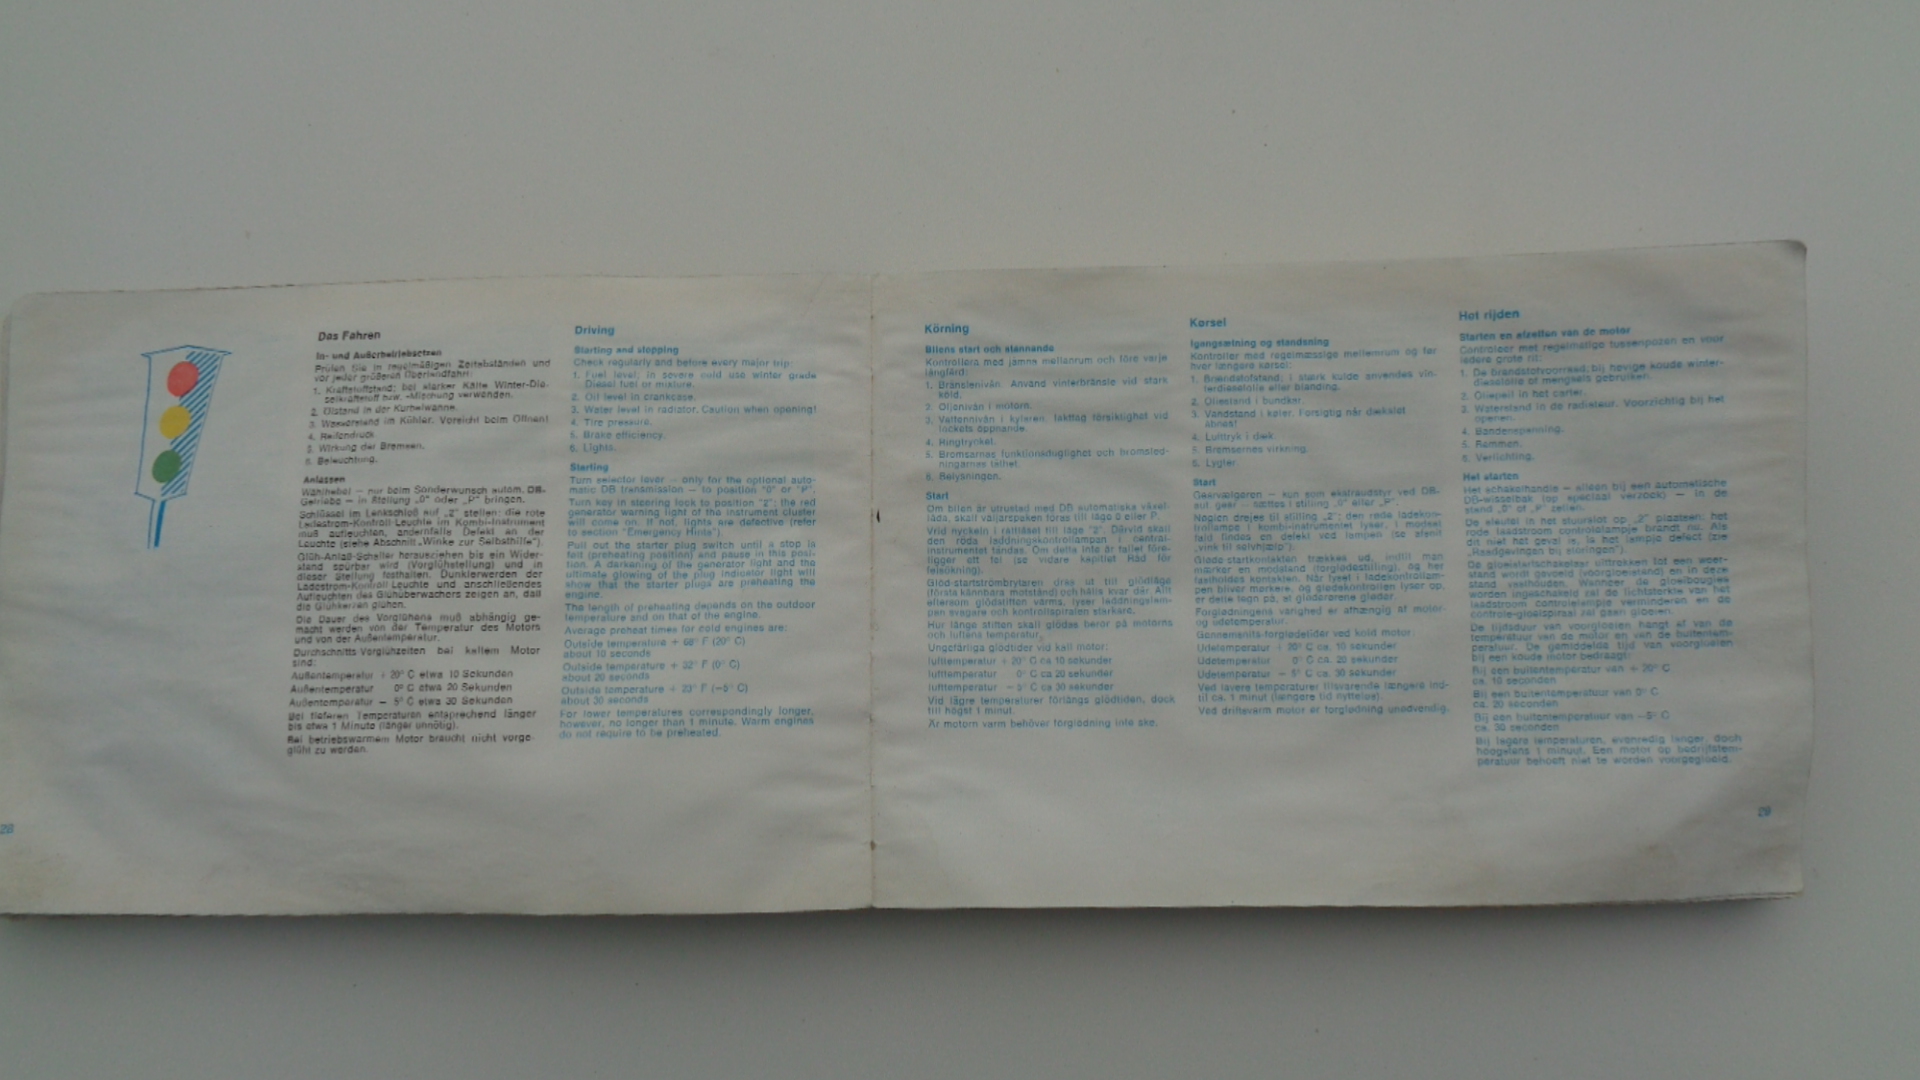 Das Fahren
In- und Außerbetriebsetzen
Prüfen Sie in regelmäßigen Zeitabständen und
vor jeder größeren Überlandfahrt:
1. Kraftstoffstand; bei starker Kälte Winter-Die-
selkraftstoff bzw. -Mischung verwenden.
2. Ölstand in der Kurbelwanne.
3. Wasserstand im Kühler. Vorsicht beim Öffnen!
4. Reifendruck.
5. Wirkung der Bremsen.
6. Beleuchtung.
Anlassen
Wählhebel – nur beim Sonderwunsch autom. DB-
Getriebe – in Stellung „0" oder „P" bringen.
Schlüssel im Lenkschloß auf „2" stellen: die rote
Ladestrom-Kontroll-Leuchte im Kombi-Instrument
muß aufleuchten, andernfalls Defekt an der
Leuchte (siehe Abschnitt „Winke zur Selbsthilfe").
Glüh-Anlaß-Schalter herausziehen bis ein Wider-
stand spürbar wird (Vorglühstellung) und in
dieser Stellung festhalten. Dunklerwerden der
Ladestrom-Kontroll-Leuchte und anschließendes
Aufleuchten des Glühüberwachers zeigen an, daß
die Glühkerzen glühen.
Die Dauer des Vorglühens muß abhängig ge-
macht werden von der Temperatur des Motors
und von der Außentemperatur.
Durchschnitts-Vorglühzeiten bei kaltem Motor
sind:
Außentemperatur + 20° C etwa 10 Sekunden
Außentemperatur 0° C etwa 20 Sekunden
Außentemperatur – 5° C etwa 30 Sekunden
Bei tieferen Temperaturen entsprechend länger
bis etwa 1 Minute (länger unnötig).
Bei betriebswarmem Motor braucht nicht vorge-
glüht zu werden.
28
Driving
Starting and stopping
Check regularly and before every major trip:
1. Fuel level; in severe cold use winter grade
Diesel fuel or mixture.
2. Oil level in crankcase.
3. Water level in radiator. Caution when opening!
4. Tire pressure.
5. Brake efficiency.
6. Lights.
Starting
Turn selector lever – only for the optional auto-
matic DB transmission – to position "0" or "P".
Turn key in steering lock to position "2": the red
generator warning light of the instrument cluster
will come on. If not, lights are defective (refer
to section "Emergency Hints").
Pull out the starter plug switch until a stop is
felt (preheating position) and pause in this posi-
tion. A darkening of the generator light and the
ultimate glowing of the plug indicator light will
show that the starter plugs are preheating the
engine.
The length of preheating depends on the outdoor
temperature and on that of the engine.
Average preheat times for cold engines are:
Outside temperature + 68° F (20° C)
about 10 seconds
Outside temperature + 32° F (0° C)
about 20 seconds
Outside temperature + 23° F (–5° C)
about 30 seconds
For lower temperatures correspondingly longer,
however, no longer than 1 minute. Warm engines
do not require to be preheated.
Körning
Bilens start och stannande
Kontrollera med jämna mellanrum och före varje
långfärd:
1. Bränslenivån. Använd vinterbränsle vid stark
köld.
2. Oljenivån i motorn.
3. Vattennivån i kylaren. Iakttag försiktighet vid
lockets öppnande.
4. Ringtrycket.
5. Bromsarnas funktionsduglighet och bromsled-
ningarnas täthet.
6. Belysningen.
Start
Om bilen är utrustad med DB automatiska växel-
låda, skall väljarspaken föras till läge 0 eller P.
Vrid nyckeln i rattlåset till läge "2". Därvid skall
den röda laddningskontrollampan i central-
instrumentet tändas. Om detta inte är fallet före-
ligger ett fel (se vidare kapitlet Råd för
felsökning).
Glöd-startströmbrytaren dras ut till glödläge
(första kännbara motstånd) och hålls kvar där. Allt
eftersom glödstiften värms, lyser laddningslam-
pan svagare och kontrollspiralen starkare.
Hur länge stiften skall glödas beror på motorns
och luftens temperatur.
Ungefärliga glödtider vid kall motor:
lufttemperatur + 20° C ca 10 sekunder
lufttemperatur 0° C ca 20 sekunder
lufttemperatur – 5° C ca 30 sekunder
Vid lägre temperaturer förlängs glödtiden, dock
till högst 1 minut.
Är motorn varm behöver förglödning inte ske.
Kørsel
Igangsætning og standsning
Kontrollér med regelmæssige mellemrum og før
hver længere kørsel:
1. Brændstofstand; i stærk kulde anvendes vin-
terdieselolie eller blanding.
2. Oliestand i bundkar.
3. Vandstand i køler. Forsigtig når dækslet
åbnes!
4. Lufttryk i dæk.
5. Bremsernes virkning.
6. Lygter.
Start
Gearvælgeren – kun som ekstraudstyr ved DB-
aut. gear – sættes i stilling „0" eller „P".
Nøglen drejes til stilling „2": den røde ladekon-
trollampe i kombi-instrumentet lyser. I modsat
fald findes en defekt ved lampen (se afsnit
„vink til selvhjælp").
Gløde-startkontakten trækkes ud, indtil man
mærker en modstand (forglødestilling), og her
fastholdes kontakten. Når lyset i ladekontrollam-
pen bliver mørkere, og glødekontrollen lyser op,
er dette tegn på, at glødørerne gløder.
Forglødningens varighed er afhængig af motor-
og udetemperatur.
Gennemsnits-forglødetider ved kold motor:
Udetemperatur + 20° C ca. 10 sekunder
Udetemperatur 0° C ca. 20 sekunder
Udetemperatur – 5° C ca. 30 sekunder
Ved lavere temperaturer tilsvarende længere ind-
til ca. 1 minut (længere tid nytteløs).
Ved driftsvarm motor er forglødning unødvendig.
Het rijden
Starten en afzetten van de motor
Controleer met regelmatige tussenpozen en voor
iedere grote rit:
1. De brandstofvoorraad; bij hevige koude winter-
dieselolie of mengsels gebruiken.
2. Oliepeil in het carter.
3. Waterstand in de radiateur. Voorzichtig bij het
openen.
4. Bandenspanning.
5. Remmen.
6. Verlichting.
Het starten
Het schakelhandle – alleen bij een automatische
DB-wisselbak (op speciaal verzoek) – in de
stand „0" of „P" zetten.
De sleutel in het stuurslot op „2" plaatsen: het
rode laadstroom controlelampje brandt nu. Als
dit niet het geval is, is het lampje defect (zie
„Raadgevingen bij storingen").
De gloeistartschakelaar uittrekken tot een weer-
stand wordt gevoeld (voorgloeistand) en in deze
stand vasthouden. Wanneer de gloeibougies
worden ingeschakeld zal de lichtsterkte van het
laadstroom controlelampje verminderen en de
controle-gloeispiraal zal gaan gloeien.
De tijdsduur van voorgloeien hangt af van de
temperatuur van de motor en van de buitentem-
peratuur. De gemiddelde tijd van voorgloeien
bij een koude motor bedraagt:
Bij een buitentemperatuur van + 20° C
ca. 10 seconden
Bij een buitentemperatuur van 0° C
ca. 20 seconden
Bij een buitentemperatuur van –5° C
ca. 30 seconden
Bij lagere temperaturen, evenredig langer, doch
hoogstens 1 minuut. Een motor op bedrijfstem-
peratuur behoeft niet te worden voorgegloeid.
29